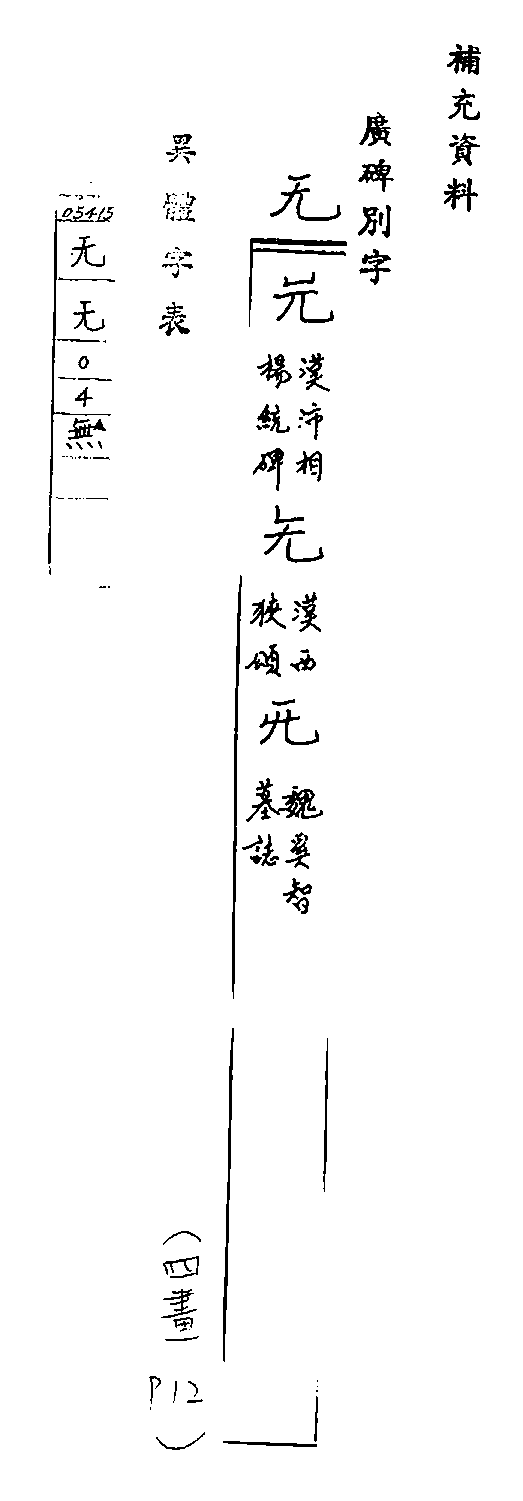 補充資料
廣碑別字
无
漢沛相
楊統碑
漢西
狹頌
魏奚智
墓誌
(四畫 P12)
異體字表
05415
无
无
0
4
無